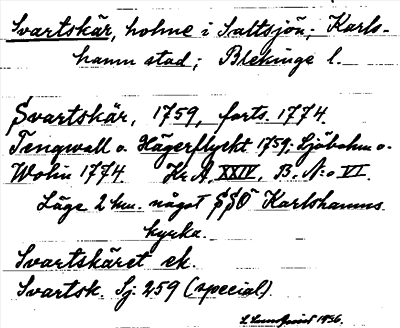 Svartskär, holme i Saltsjön; Karls-
hamn stad; Blekinge l.
Svartskär, 1759, forts. 1774.
Tengwall o. Hägerflycht 1759; Sjöbohm o.
Wolin 1774 Kr A, XXIV, B. N:o VI.
Läge 2 km. något SSÖ Karlshamns
kyrka.
Svartskäret ek.
Svartsk. Sj. 259 (special).
1936.